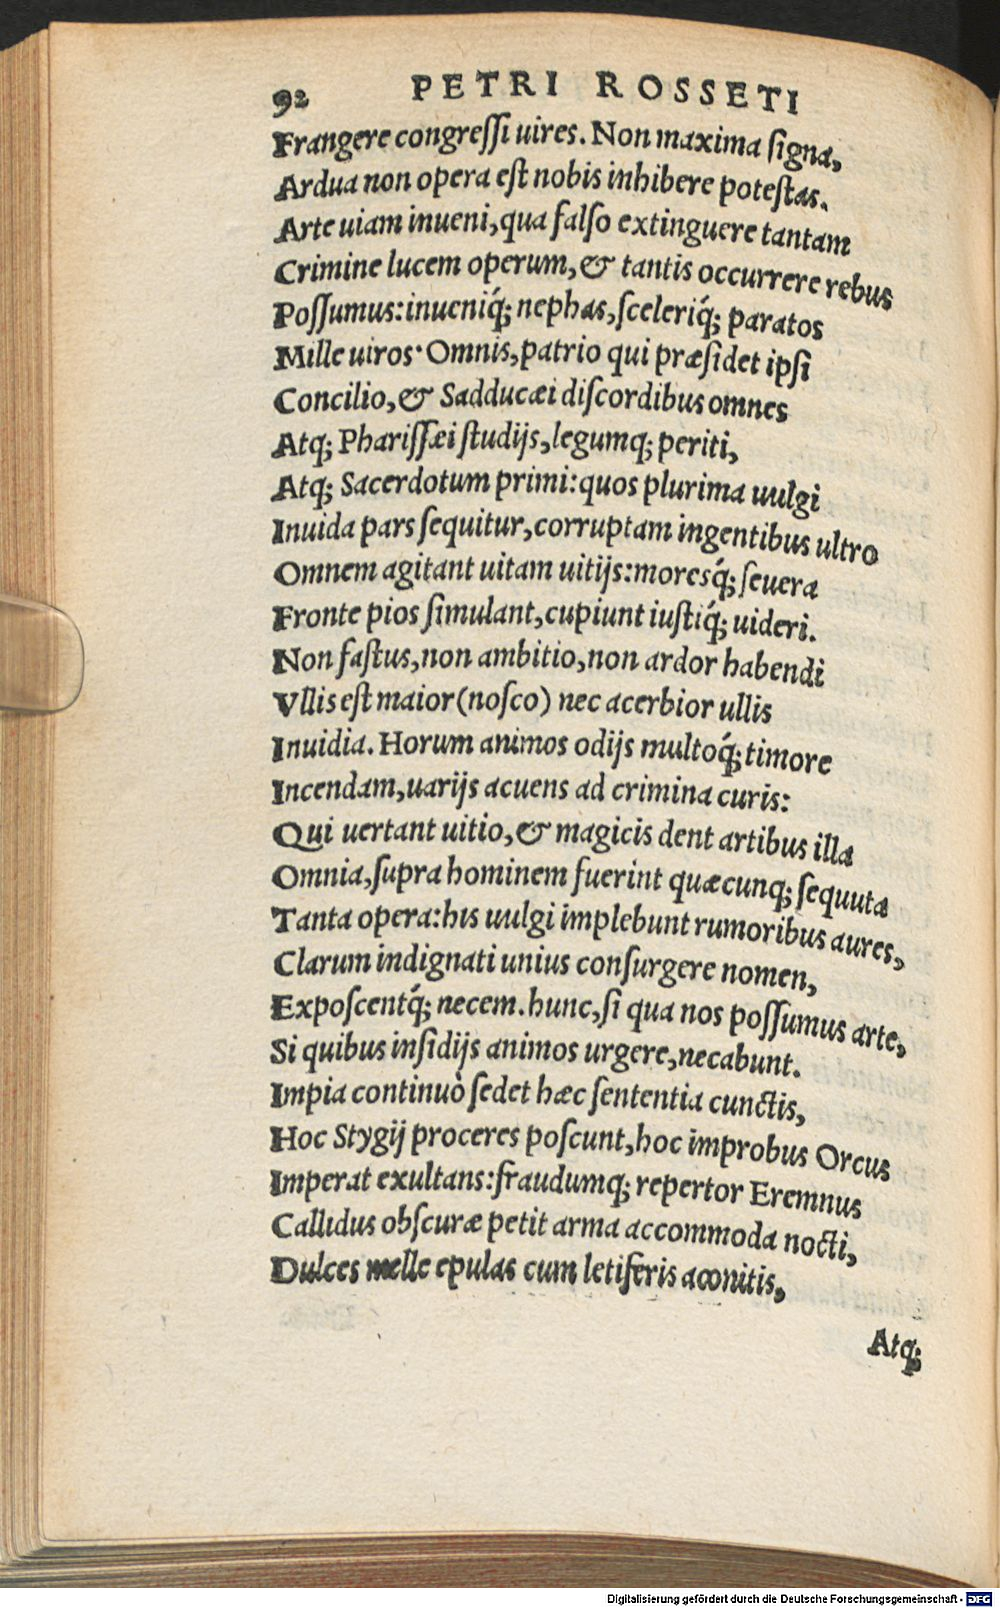 92 PETRI ROSSETI
Frangere congreſſi uires. Non maxima ſigna,
Ardua non opera eſt nobis inhibere poteſtas.
Arte uiam inueni, qua falſo extinguere tantam
Crimine lucem operum, & tantis occurrere rebus
Poſſumus: inueniq́; nephas, ſceleriq́; paratos
Mille uiros· Omnis, patrio qui præſidet ipſi
Concilio, & Sadducæi diſcordibus omnes
Atq; Phariſſæi ſtudijs, legumq; periti,
Atq; Sacerdotum primi: quos plurima uulgi
Inuida pars ſequitur, corruptam ingentibus ultro
Omnem agitant uitam uitijs: moresq́; ſeuera
Fronte pios ſimulant, cupiunt iuſtiq́; uideri.
Non faſtus, non ambitio, non ardor habendi
Vllis eſt maior (noſco) nec acerbior ullis
Inuidia. Horum animos odijs multoq́; timore
Incendam, uarijs acuens ad crimina curis:
Qui uertant uitio, & magicis dent artibus illa
Omnia, ſupra hominem fuerint quæcunq; ſequuta
Tanta opera: his uulgi implebunt rumoribus aures,
Clarum indignati unius conſurgere nomen,
Expoſcentq́; necem. hunc, ſi qua nos poſſumus arte,
Si quibus inſidijs animos urgere, necabunt.
Impia continuò ſedet hæc ſententia cunctis,
Hoc Stygij proceres poſcunt, hoc improbus Orcus
Imperat exultans: fraudumq; repertor Eremnus
Callidus obſcuræ petit arma accommoda nocti,
Dulces melle epulas cum letiferis aconitis,
Atq;
Digitalisierung gefördert durch die Deutsche Forschungsgemeinschaft - DFG